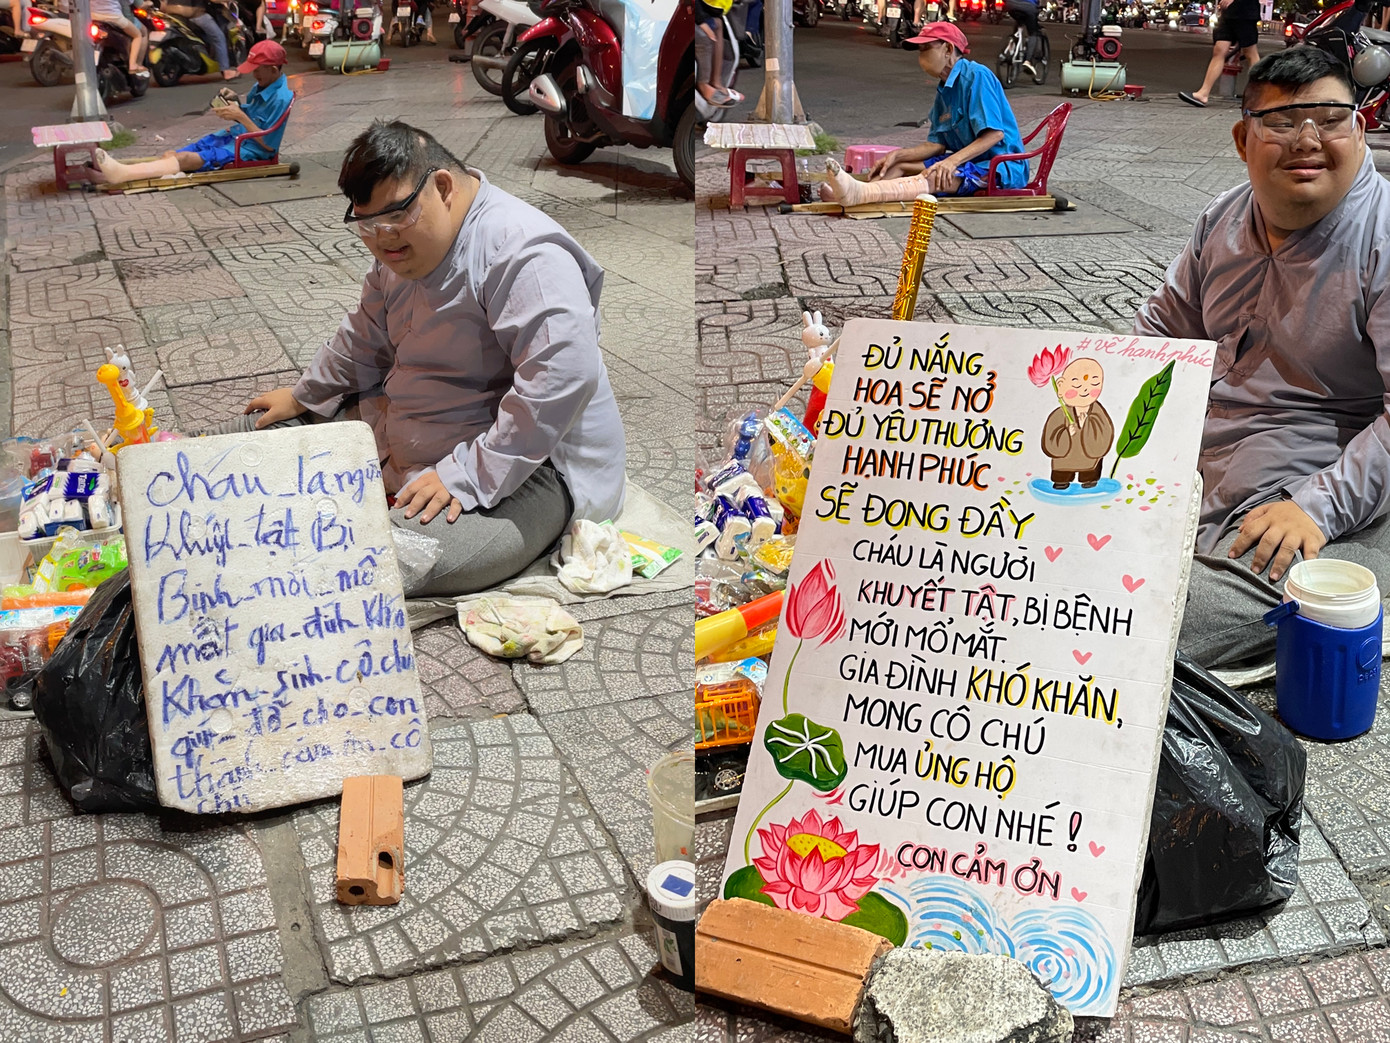 cháu là người
Khuyết tật Bị
Bịnh mới mổ
mắt gia đình Khó
Khăn xinh cô chú
giúp đỡ cho con
thành cảm ơn cô
chú
# vẽ hạnh phúc
ĐỦ NẮNG
HOA SẼ NỞ
ĐỦ YÊU THƯƠNG
HẠNH PHÚC
SẼ ĐỌNG ĐẦY
CHÁU LÀ NGƯỜI
KHUYẾT TẬT, BỊ BỆNH
MỚI MỔ MẮT.
GIA ĐÌNH KHÓ KHĂN,
MONG CÔ CHÚ
MUA ỦNG HỘ
GIÚP CON NHÉ !
CON CẢM ƠN